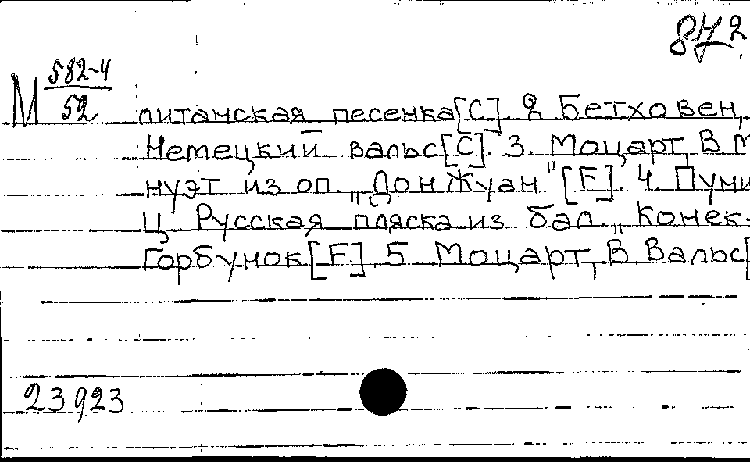 872
М 582-4
52
литанская песенка [C]. 2 Бетховен,
Немецкий вальс [C]. 3. Моцарт, В М
нуэт из оп. „Дон Жуан" [F]. 4. Пуни
Ц. Русская пляска из бал. „Конек-
Горбунок [F]. 5. Моцарт, В Вальс [
23923